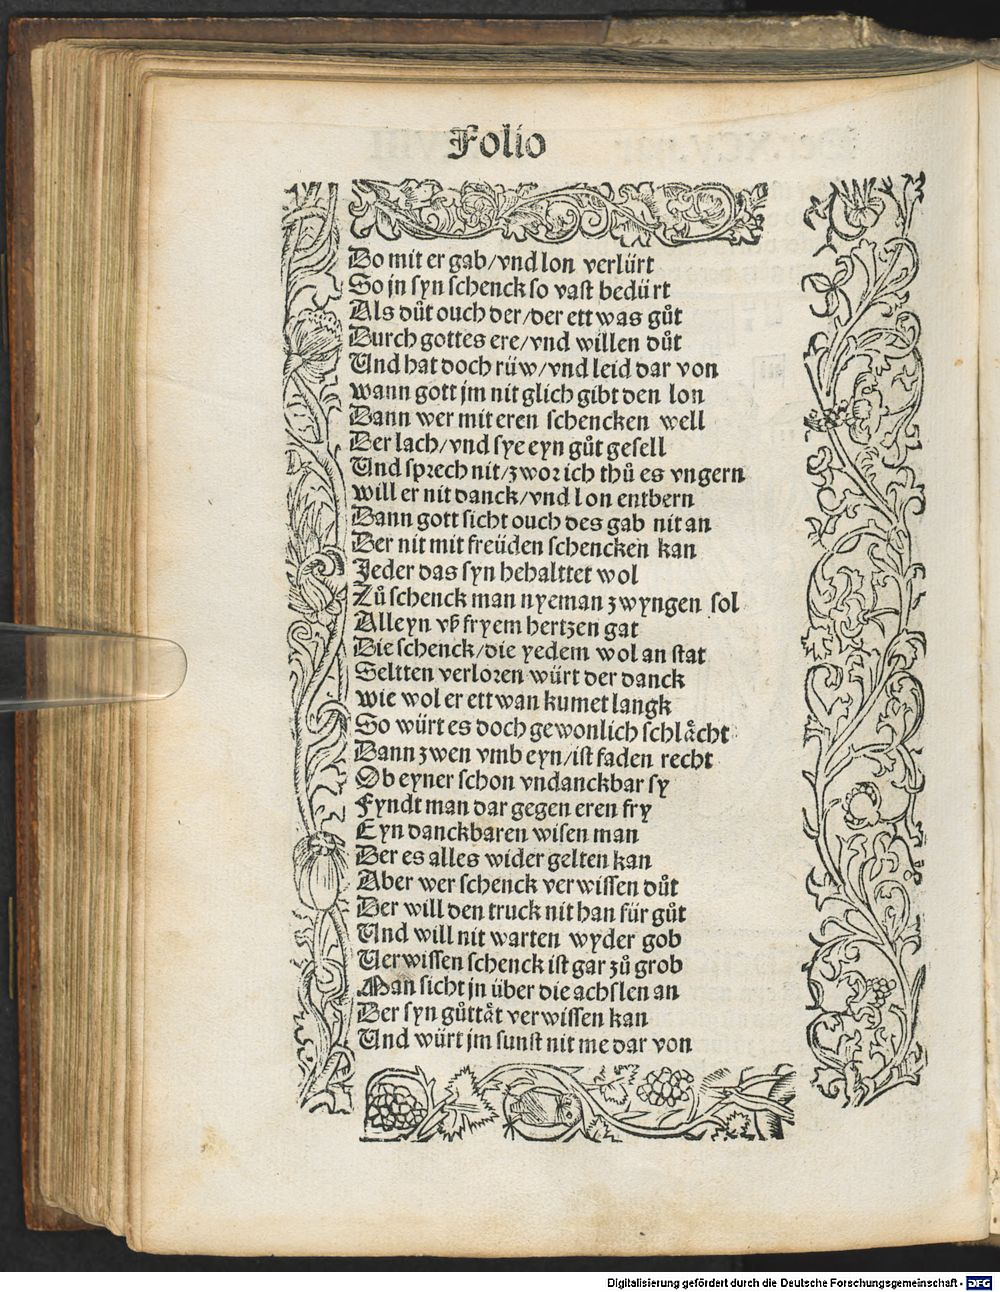 Folio
Do mit er gab/vnd lon verlürt
So jn syn schenck so vast bedürt
Als důt ouch der/der ettwas gůt
Durch gottes ere/vnd willen důt
Und hat doch rüw/vnd leid dar von
wann gott jm nit glich gibt den lon
Dann wer mit eren schencken well
Der lach/vnd sye eyn gůt gesell
Und sprech nit/zwor ich thů es vngern
will er nit danck/vnd lon entbern
Dann gott sicht ouch des gab nit an
Der nit mit freüden schencken kan
Jeder das syn behalttet wol
Zů schenck man nyeman zwyngen sol
Alleyn vß fryem hertzen gat
Die schenck/die yedem wol an stat
Seltten verloren würt der danck
wie wol er ettwan kumet langk
So würt es doch gewonlich schlåcht
Dann zwen vmb eyn/ist faden recht
Ob eyner schon vndanckbar sy
Fyndt man dar gegen eren fry
Eyn danckbaren wisen man
Der es alles wider gelten kan
Aber wer schenck verwissen důt
Der will den truck nit han für gůt
Und will nit warten wyder gob
Verwissen schenck ist gar zů grob
Man sicht jn über die achslen an
Der syn gůttåt verwissen kan
Und würt jm sunst nit me dar von
Digitalisierung gefördert durch die Deutsche Forschungsgemeinschaft - DFG